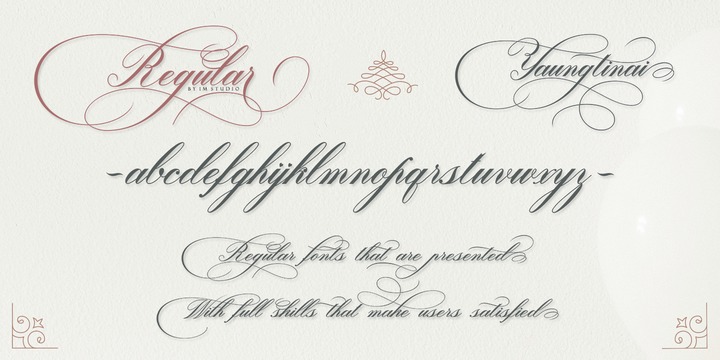 Regular
BY IM STUDIO
Yaungtinai
-abcdefghijklmnopqrstuvwxyz-
Regular fonts that are presented
With full skills that make users satisfied